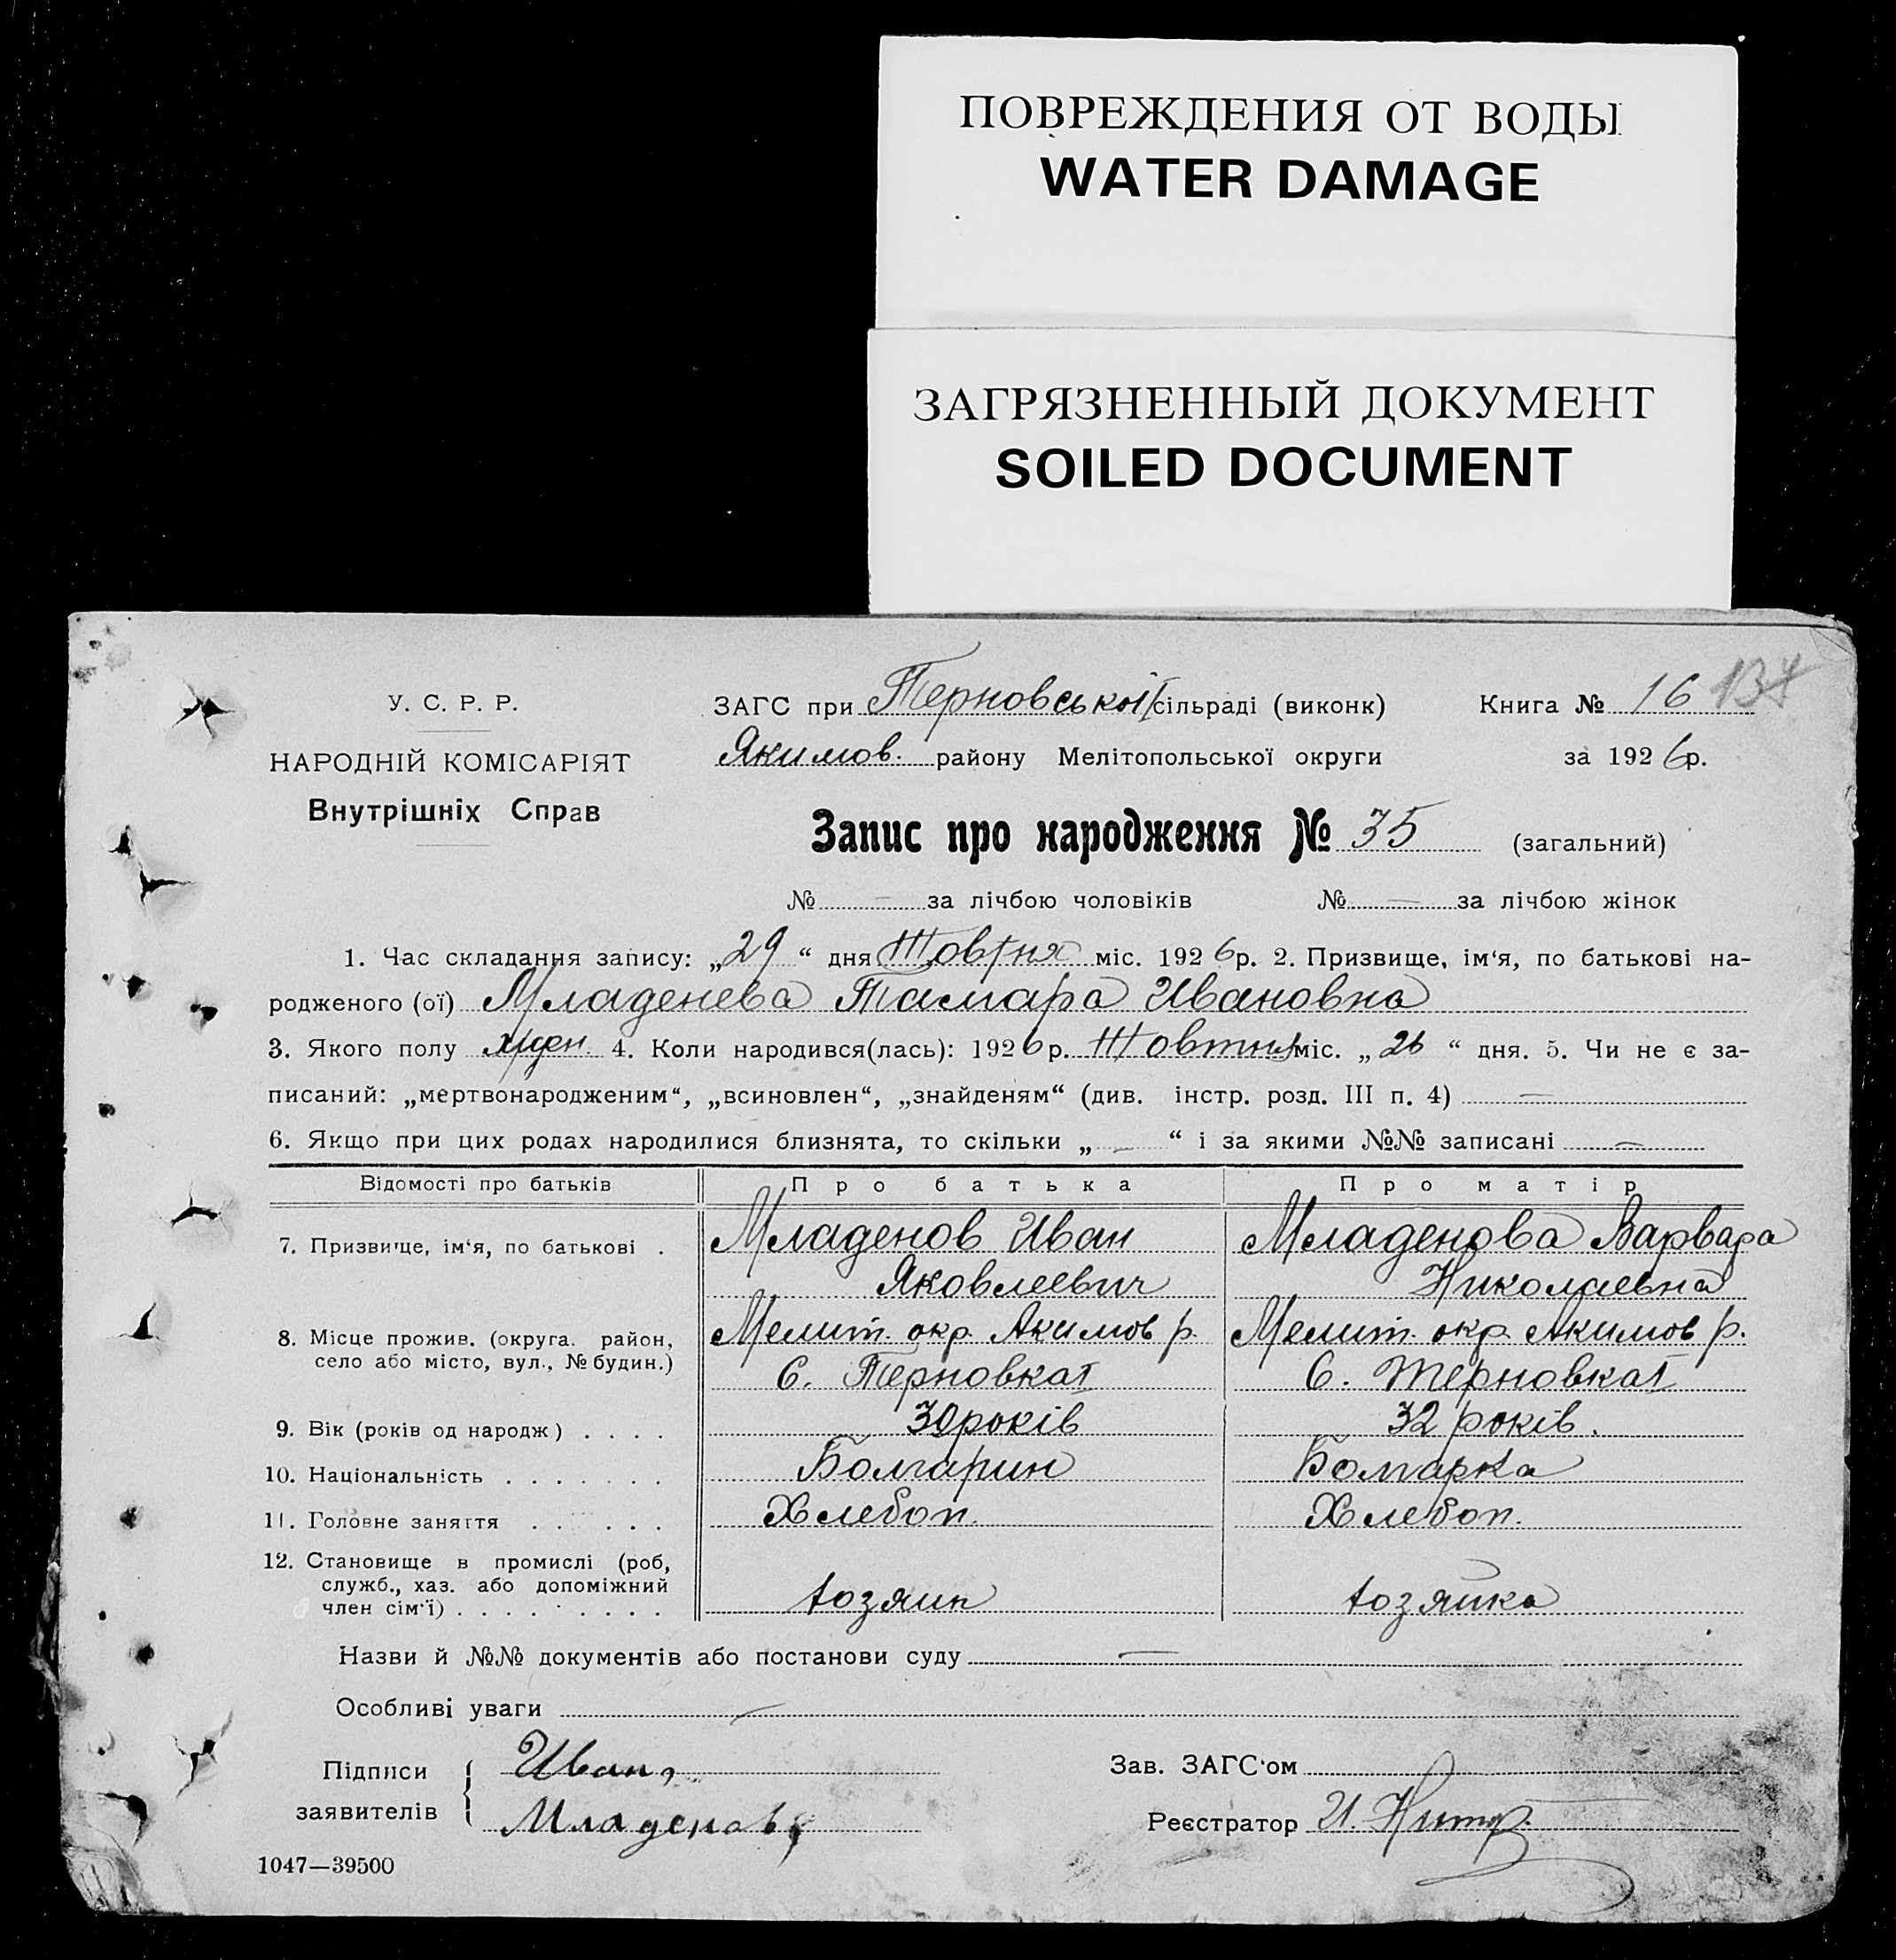 ПОВРЕЖДЕНИЯ ОТ ВОДЫ
WATER DAMAGE
ЗАГРЯЗНЕННЫЙ ДОКУМЕНТ
SOILED DOCUMENT
У. С. Р. Р.
НАРОДНІЙ КОМІСАРІЯТ
Внутрішніх Справ
ЗАГС при Терновської I сільраді (виконк) Книга № 16 134
Якимов. району Мелітопольської округи за 1926р.
Запис про народження № 35 (загальний)
№ — за лічбою чоловіків № — за лічбою жінок
1. Час складання запису: „29“ дня Жовтня міс. 1926р. 2. Призвище, ім‘я, по батькові на-
родженого (ої) Младенева Тамара Ивановна
3. Якого полу жрен. 4. Коли народився(лась): 1926р. Жовтня міс. „26“ дня. 5. Чи не є за-
писаний: „мертвонародженим“, „всиновлен“, „знайденям“ (див. інстр. розд. III п. 4) —
6. Якщо при цих родах народилися близнята, то скільки „ — “ і за якими №№ записані —
Відомості про батьків Про батька Про матір
7. Призвище, ім‘я, по батькові . Младенов Иван Младенова Варвара
Яковлеевич Николаевна
8. Місце прожив. (округа. район, Мелит. окр. Акимов р. Мелит. окр. Акимов р.
село або місто, вул., № будин.) С. Терновка I С. Терновка I
9. Вік (років од народж) . . . . 30 років 32 років.
10. Національність . . . . . . . Болгарин Болгарка
11. Головне заняття . . . . . . Хлебоп. Хлебоп.
12. Становище в промислі (роб,
служб., хаз. або допоміжний
член сім‘ї) . . . . . . . . . хозяин хозяйка
Назви й №№ документів або постанови суду —
Особливі уваги —
Підписи Иван Зав. ЗАГС‘ом
заявителів Младенов Реєстратор И.
1047—39500